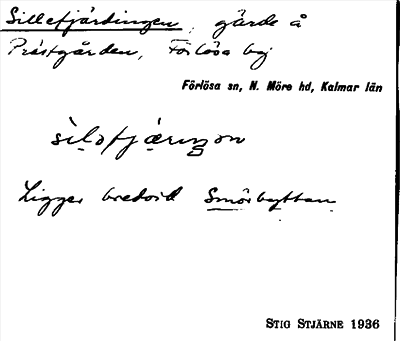 Sillefjärdingen, gärde å
Prästgården, Förlösa by
Förlösa sn, N. Möre hd, Kalmar län
Ligger bredvid Smörbyttan
STIG STJÄRNE 1936